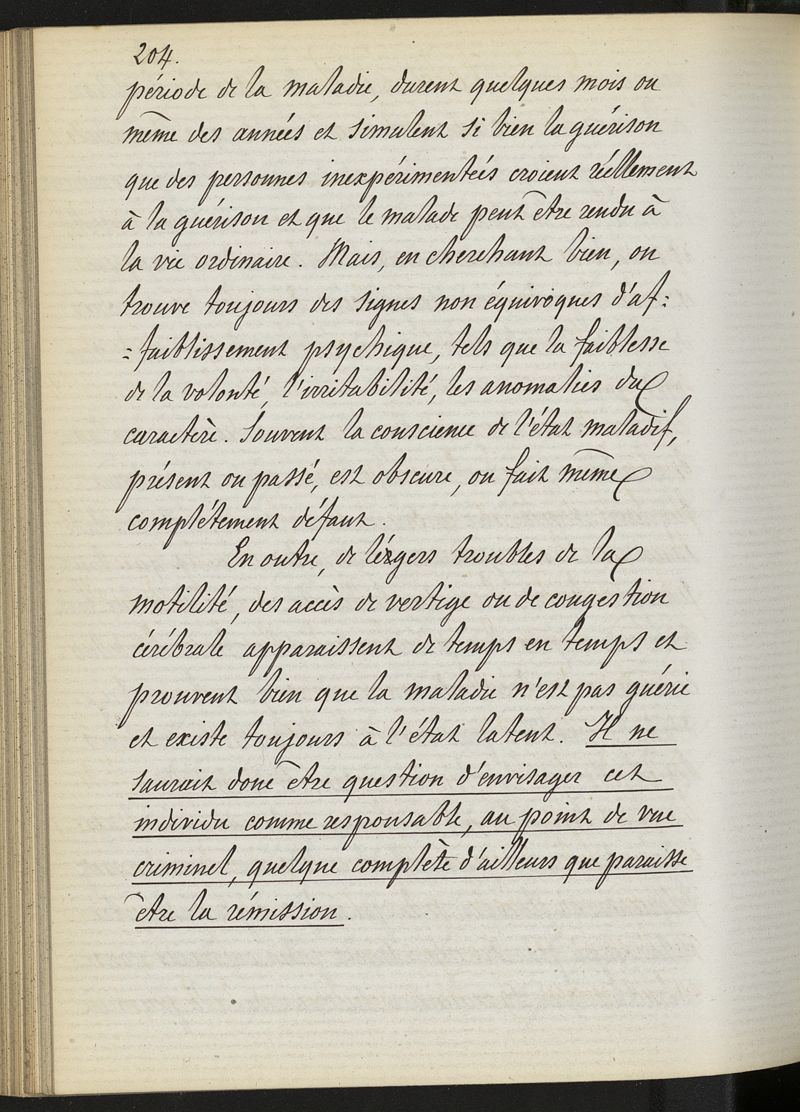 204.
période de la maladie, durent quelques mois ou
même des années et simulent si bien la guérison
que des personnes inexpérimentées croient réellement
à la guérison et que le malade peut être rendu à
la vie ordinaire. Mais, en cherchant bien, on
trouve toujours des signes non équivoques d'af:
=faiblissement psychique, tels que la faiblesse
de la volonté, l'irritabilité, les anomalies du
caractère. Souvent la conscience de l'état maladif,
présent ou passé, est obscure, ou fait même
complétement défaut.
En outre, de légers troubles de la
motilité, des accès de vertige ou de congestion
cérébrale apparaissent de temps en temps et
prouvent bien que la maladie n'est pas guérie
et existe toujours à l'état latent. Il ne
saurait donc être question d'envisager cet
individu comme responsable, au point de vue
criminel, quelque complète d'ailleurs que paraisse
être la rémission.